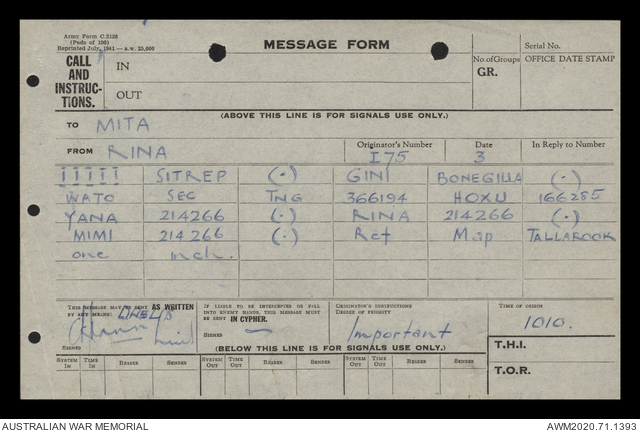 Army Form C.2128
(Pads of 100)
Reprinted July, 1941 — A.W. 25,000
MESSAGE FORM
Serial No.
CALL AND INSTRUCTIONS.
IN
OUT
No of Groups
GR.
OFFICE DATE STAMP
(ABOVE THIS LINE IS FOR SIGNALS USE ONLY.)
TO MITA
FROM RINA
Originator's Number
I 75
Date
3
In Reply to Number
IIIII SITREP (.) GINI BONEGILLA (.)
WATO SEC TNG 366194 HOXU 166285
YANA 214266 (.) RINA 214266 (.)
MIMI 214266 (.) Ref Map TALLAROOK
one inch.
THIS MESSAGE MAY BE SENT AS WRITTEN
BY ANY MEANS:
SIGNED
IF LIABLE TO BE INTERCEPTED OR FALL
INTO ENEMY HANDS, THIS MESSAGE MUST
BE SENT IN CYPHER.
SIGNED
ORIGINATOR'S INSTRUCTIONS
DEGREE OF PRIORITY
Important
TIME OF ORIGIN
1010.
T.H.I.
T.O.R.
(BELOW THIS LINE IS FOR SIGNALS USE ONLY.)
SYSTEM IN TIME IN READER SENDER SYSTEM OUT TIME OUT READER SENDER SYSTEM OUT TIME OUT READER SENDER
AUSTRALIAN WAR MEMORIAL
AWM2020.71.1393